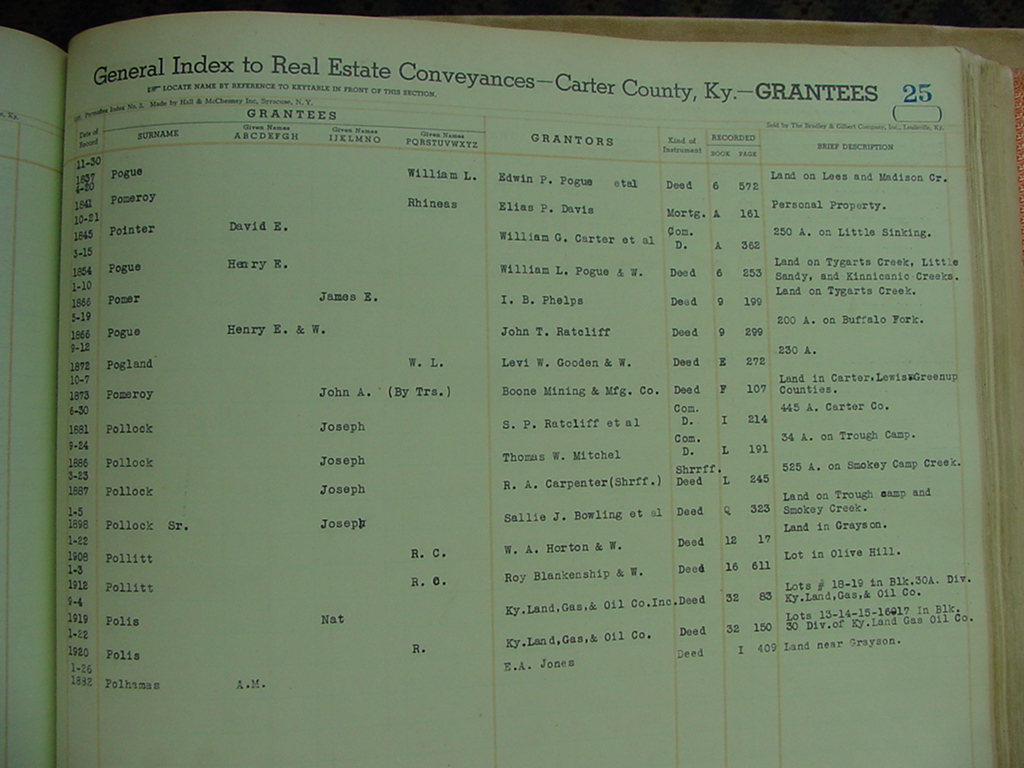 General Index to Real Estate Conveyances—Carter County, Ky.—GRANTEES 25
LOCATE NAME BY REFERENCE TO KEYTABLE IN FRONT OF THIS SECTION.
Index No. 2. Made by Hall & McChesney Inc, Syracuse, N. Y.
Sold by The Bradley & Gilbert Company, Inc., Louisville, Ky.
GRANTEES
Date of Record SURNAME Given Names ABCDEFGH Given Names IJKLMNO Given Names PQRSTUVWXYZ GRANTORS Kind of Instrument RECORDED BOOK PAGE BRIEF DESCRIPTION
11-30
1837 Pogue William L. Edwin P. Pogue etal Deed 6 572 Land on Lees and Madison Cr.
4-20
1841 Pomeroy Rhineas Elias P. Davis Mortg. A 161 Personal Property.
10-21
1845 Pointer David E. William G. Carter et al Com. D. A 362 250 A. on Little Sinking.
3-15
1854 Pogue Henry E. William L. Pogue & W. Deed 6 253 Land on Tygarts Creek, Little
Sandy, and Kinnicanic Creeks.
1-10
1866 Pomer James E. I. B. Phelps Deed 9 199 Land on Tygarts Creek.
5-19
1866 Pogue Henry E. & W. John T. Ratcliff Deed 9 299 200 A. on Buffalo Fork.
9-12
1872 Pogland W. L. Levi W. Gooden & W. Deed E 272 230 A.
10-7
1873 Pomeroy John A. (By Trs.) Boone Mining & Mfg. Co. Deed F 107 Land in Carter,Lewis&Greenup
Counties.
6-30
1881 Pollock Joseph S. P. Ratcliff et al Com. D. I 214 445 A. Carter Co.
9-24
1886 Pollock Joseph Thomas W. Mitchel Com. D. L 191 34 A. on Trough Camp.
3-23
1887 Pollock Joseph R. A. Carpenter(Shrff.) Shrrff. Deed L 245 525 A. on Smokey Camp Creek.
1-5
1898 Pollock Sr. Joseph Sallie J. Bowling et al Deed Q 323 Land on Trough camp and
Smokey Creek.
1-22
1908 Pollitt R. C. W. A. Horton & W. Deed 12 17 Land in Grayson.
1-3
1912 Pollitt R. C. Roy Blankenship & W. Deed 16 611 Lot in Olive Hill.
9-4
1919 Polis Nat Ky.Land,Gas,& Oil Co.Inc. Deed 32 83 Lots # 18-19 in Blk.30A. Div.
Ky.Land,Gas,& Oil Co.
1-22
1920 Polis R. Ky.Land,Gas,& Oil Co. Deed 32 150 Lots 13-14-15-16&17 In Blk.
30 Div.of Ky.Land Gas Oil Co.
1-26
1882 Polhamas A.M. E.A. Jones Deed I 409 Land near Grayson.